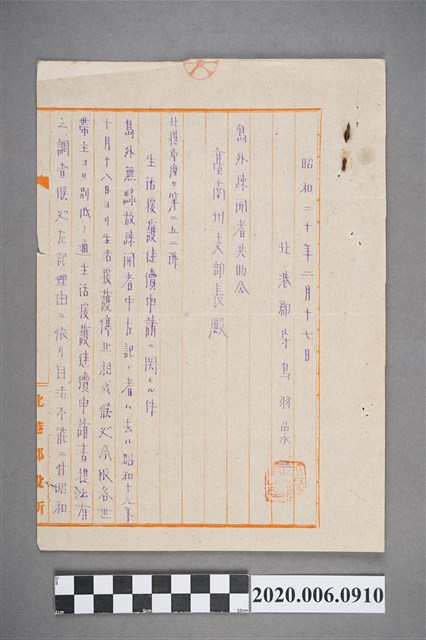 昭和二十年二月十七日
北港郡守鳥羽
島外疎開者共助会
臺南州支部長殿
生活援護継續申請ニ関スル件
島外無縁故疎開者中左記ノ者ハ去ル昭和十九年
十月十八日ヨリ生活援護停止相成候処今般各世
帯主ヨリ別紙ノ通生活援護継續申請書提出有
之調査候処左記理由ニ依リ自活不能ニ付昭和
北港郡役所
2020.006.0910